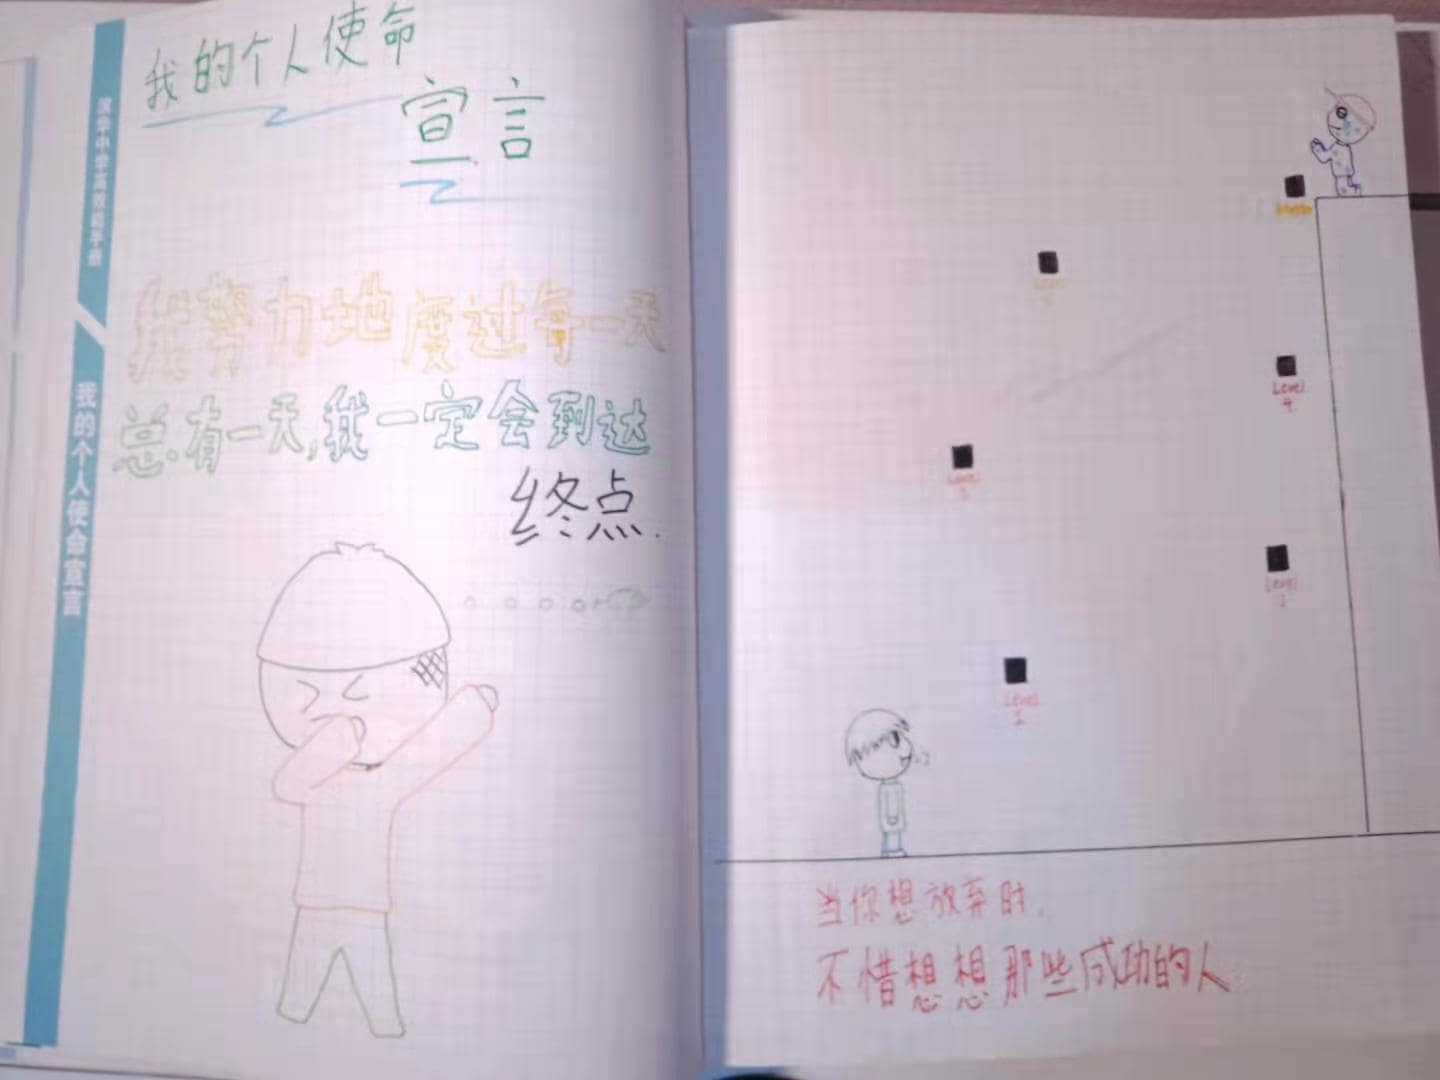 我的个人使命
宣言
我努力地度过每一天
总有一天,我一定会到达
终点.
我的个人使命宣言
Level
4
Level
Level
1
当你想放弃时,
不惜想想那些成功的人